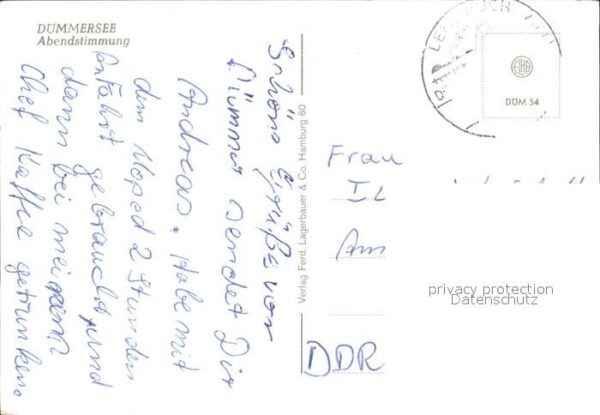 DÜMMERSEE
Abendstimmung
Schöne Grüße von
Dümmer sendet Dir
Andreas. Habe mit
dem Moped 2 Stunden
Anfahrt gebraucht und
dann bei meinem
Chef Kaffee getrunken.
Verlag Ferd. Lagerbauer & Co. Hamburg 60
DÜM 54
Frau
Am
DDR
privacy protection
Datenschutz